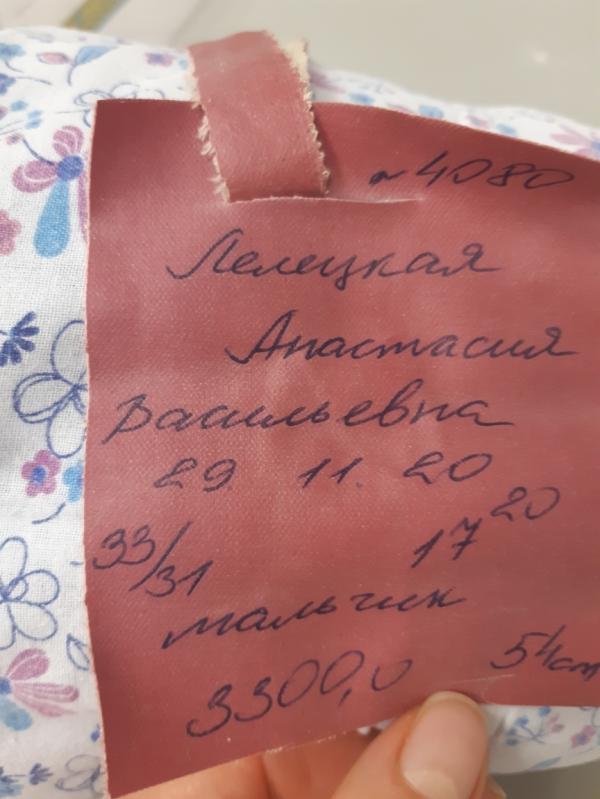 №4080
Лелецкая
Анастасия
Васильевна
29. 11. 20
33/31 17 20
мальчик
3300,0 54 cm